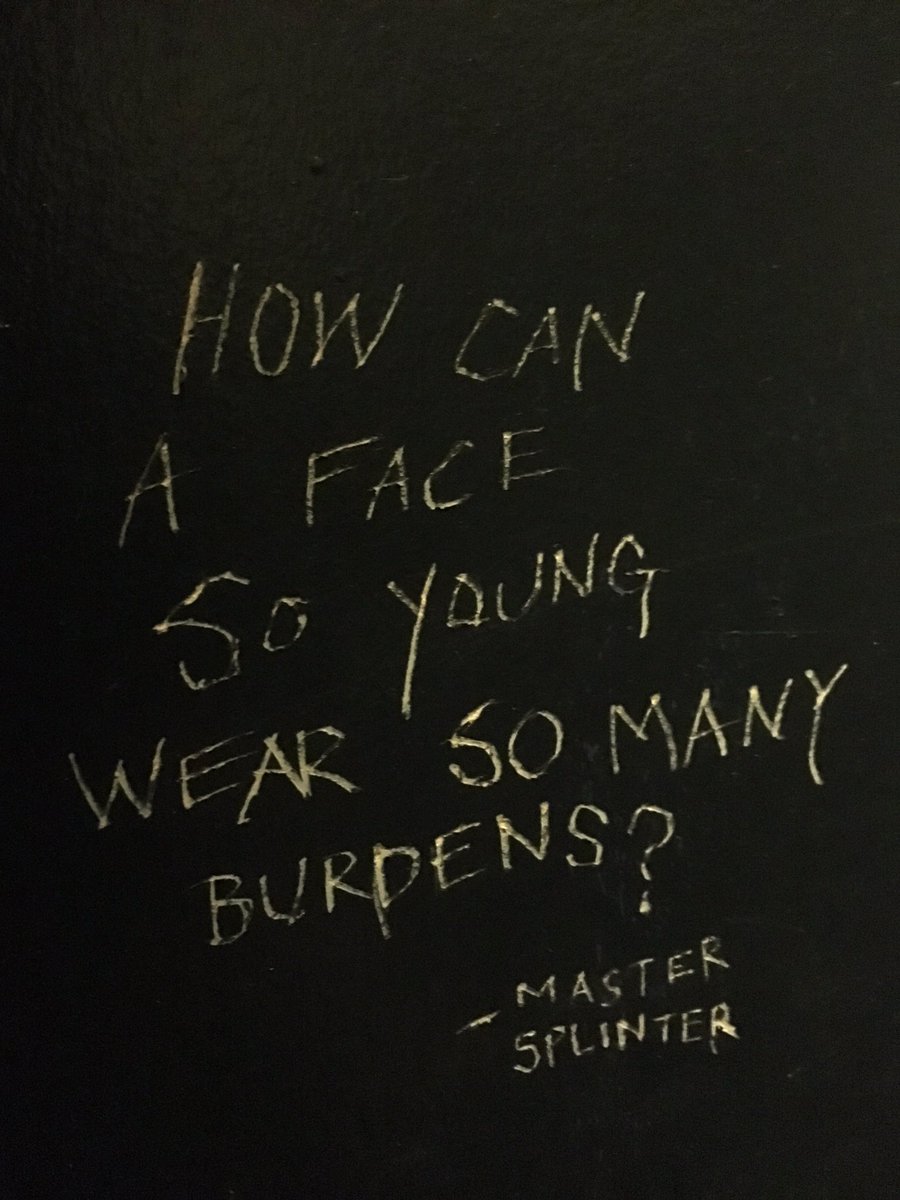 HOW CAN
A FACE
SO YOUNG
WEAR SO MANY
BURDENS?
- MASTER
SPLINTER